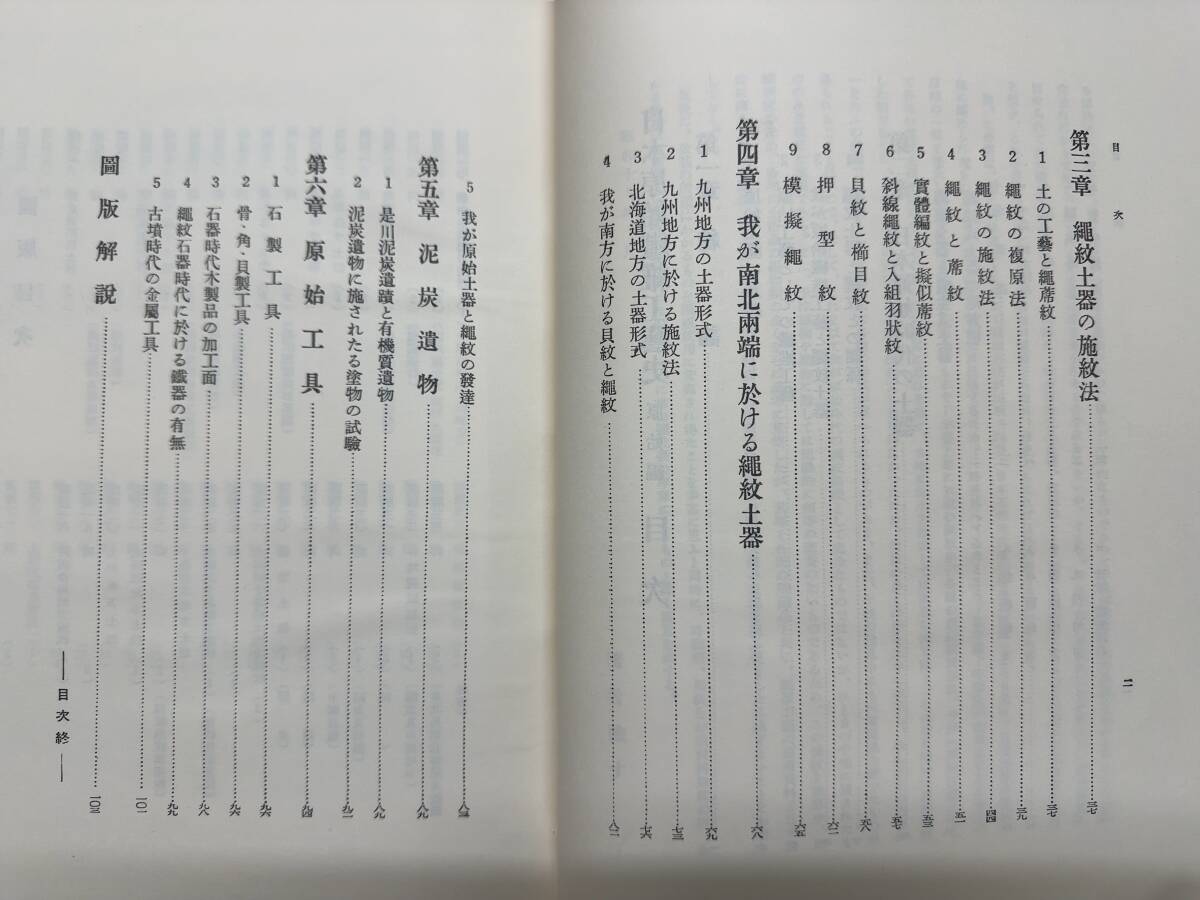 目次
二
第三章 繩紋土器の施紋法……三七
1 土の工藝と繩蓆紋……三七
2 繩紋の復原法……三九
3 繩紋の施紋法……四四
4 繩紋と蓆紋……五一
5 實體編紋と擬似蓆紋……五三
6 斜線繩紋と入組羽狀紋……五七
7 貝紋と櫛目紋……五八
8 押型紋……六二
9 模擬繩紋……六五
第四章 我が南北兩端に於ける繩紋土器……六八
1 九州地方の土器形式……六九
2 九州地方に於ける施紋法……七三
3 北海道地方の土器形式……七六
4 我が南方に於ける貝紋と繩紋……八二
5 我が原始土器と繩紋の發達……八四
第五章 泥炭遺物……八九
1 是川泥炭遺蹟と有機質遺物……八九
2 泥炭遺物に施されたる塗物の試驗……九二
第六章 原始工具……九四
1 石製工具……九六
2 骨・角・貝製工具……九六
3 石器時代木製品の加工面……九八
4 繩紋石器時代に於ける鐵器の有無……九九
5 古墳時代の金屬工具……一〇一
圖版解說……一〇三
——目次終——